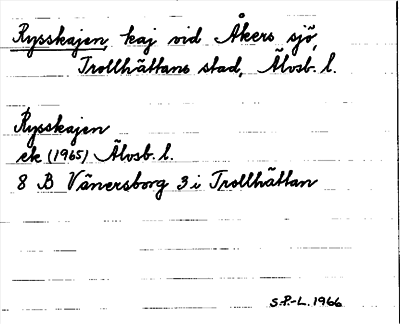 Rysskajen, kaj vid Åkers sjö,
Trollhättans stad, Älvsb. l.
Rysskajen
ek (1965) Älvsb. l.
8 B Vänersborg 3 i Trollhättan
S.P.-L. 1966